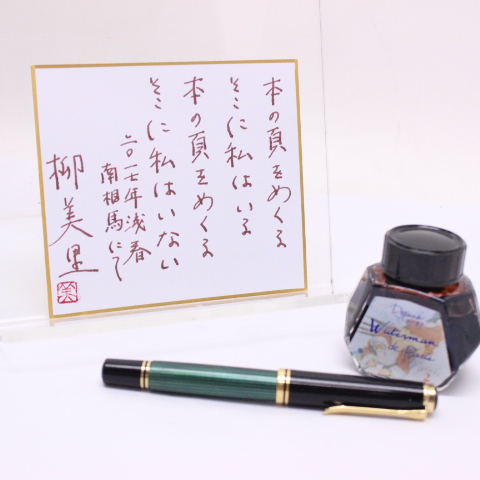 本の頁をめくる
そこに私はいる
本の頁をめくる
そこに私はいない
二〇一七年浅春
南相馬にて
柳美里
美
Depuis
Waterman
de Paris